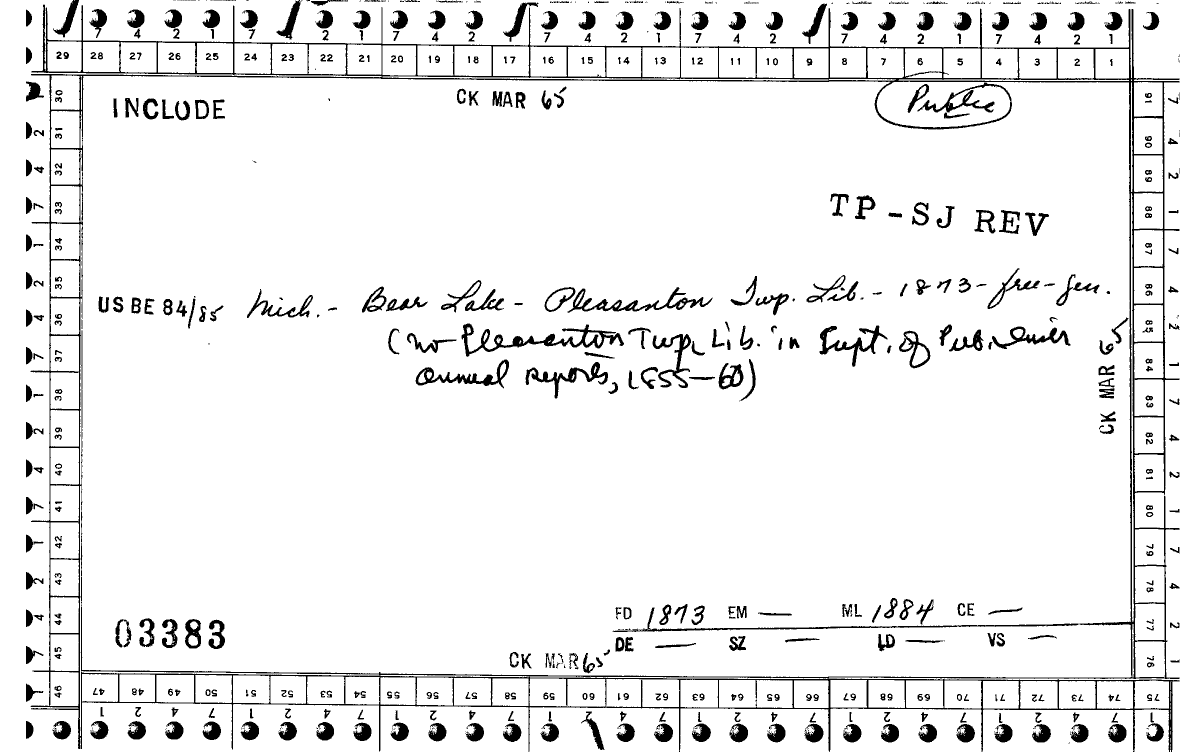 7 4 2 1 7 4 2 1 7 4 2 1 7 4 2 1 7 4 2 1 7 4 2 1 7 4 2 1
29 28 27 26 25 24 23 22 21 20 19 18 17 16 15 14 13 12 11 10 9 8 7 6 5 4 3 2 1
INCLUDE CK MAR 65 Public
TP-SJ REV
US BE 84/85 Mich. - Bear Lake - Pleasanton Twp. Lib. - 1873 - free - gen.
(no Pleasanton Twp. Lib. in Supt. of Pub. Instr.
annual reports, 1855-60)
CK MAR 65
FD 1873 EM — ML 1884 CE —
03383
DE — SZ — LD — VS —
CK MAR 65
30 31 32 33 34 35 36 37 38 39 40 41 42 43 44 45 46
91 90 89 88 87 86 85 84 83 82 81 80 79 78 77 76
47 48 49 50 51 52 53 54 55 56 57 58 59 60 61 62 63 64 65 66 67 68 69 70 71 72 73 74 75
1 2 4 7 1 2 4 7 1 2 4 7 1 2 4 7 1 2 4 7 1 2 4 7 1 2 4 7 1